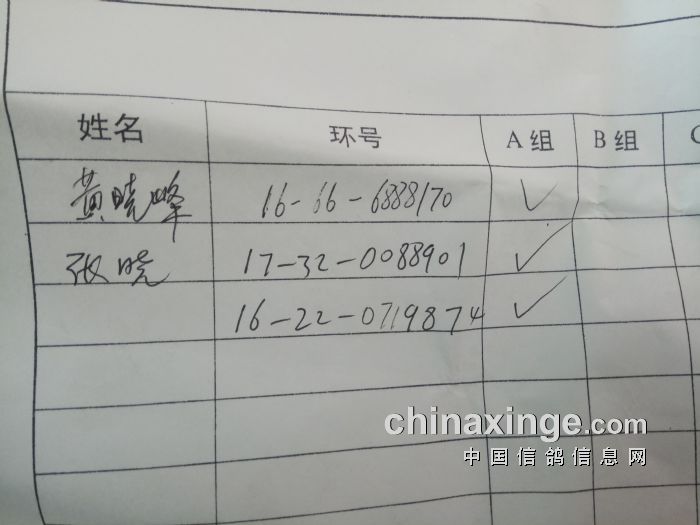 姓名 环号 A组 B组 C
黄晓峰 16-16-6888170 ✓
张晓 17-32-0088901 ✓
16-22-0719874 ✓
chinaxinge.com
中国信鸽信息网